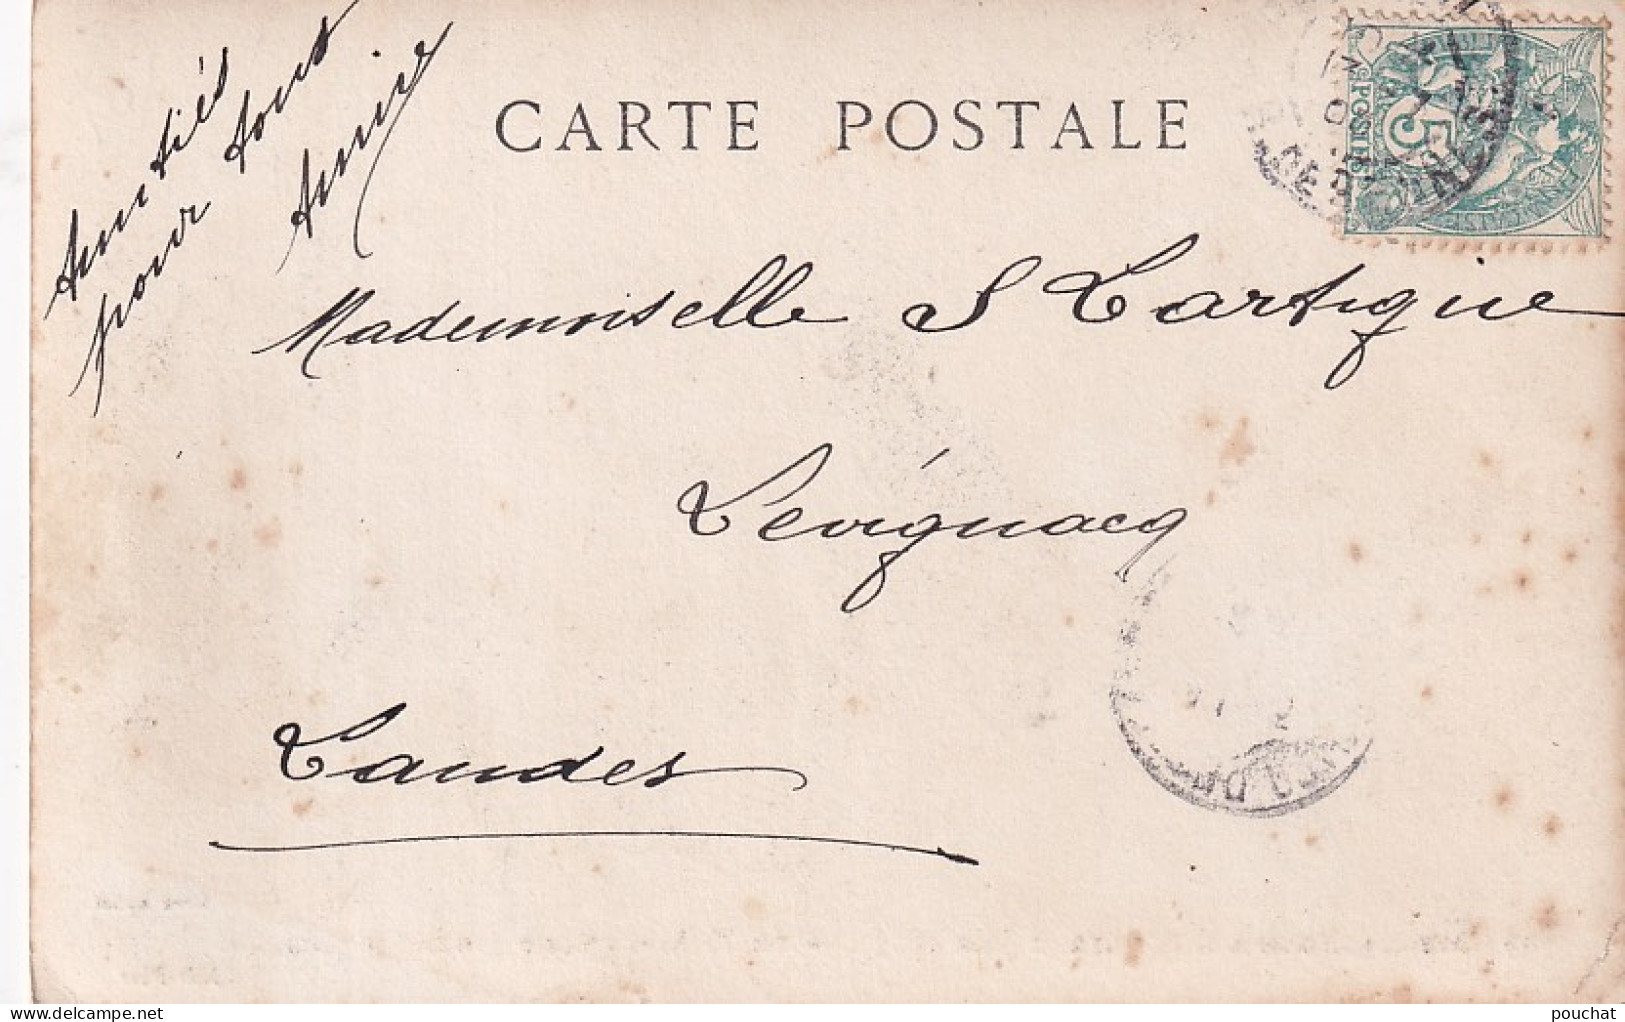 Amitiés
pour tous
Annie
CARTE POSTALE
POSTES
5
Mademoiselle S Lartigue
Levígnacq
Landes
delcampe.net
pouchat